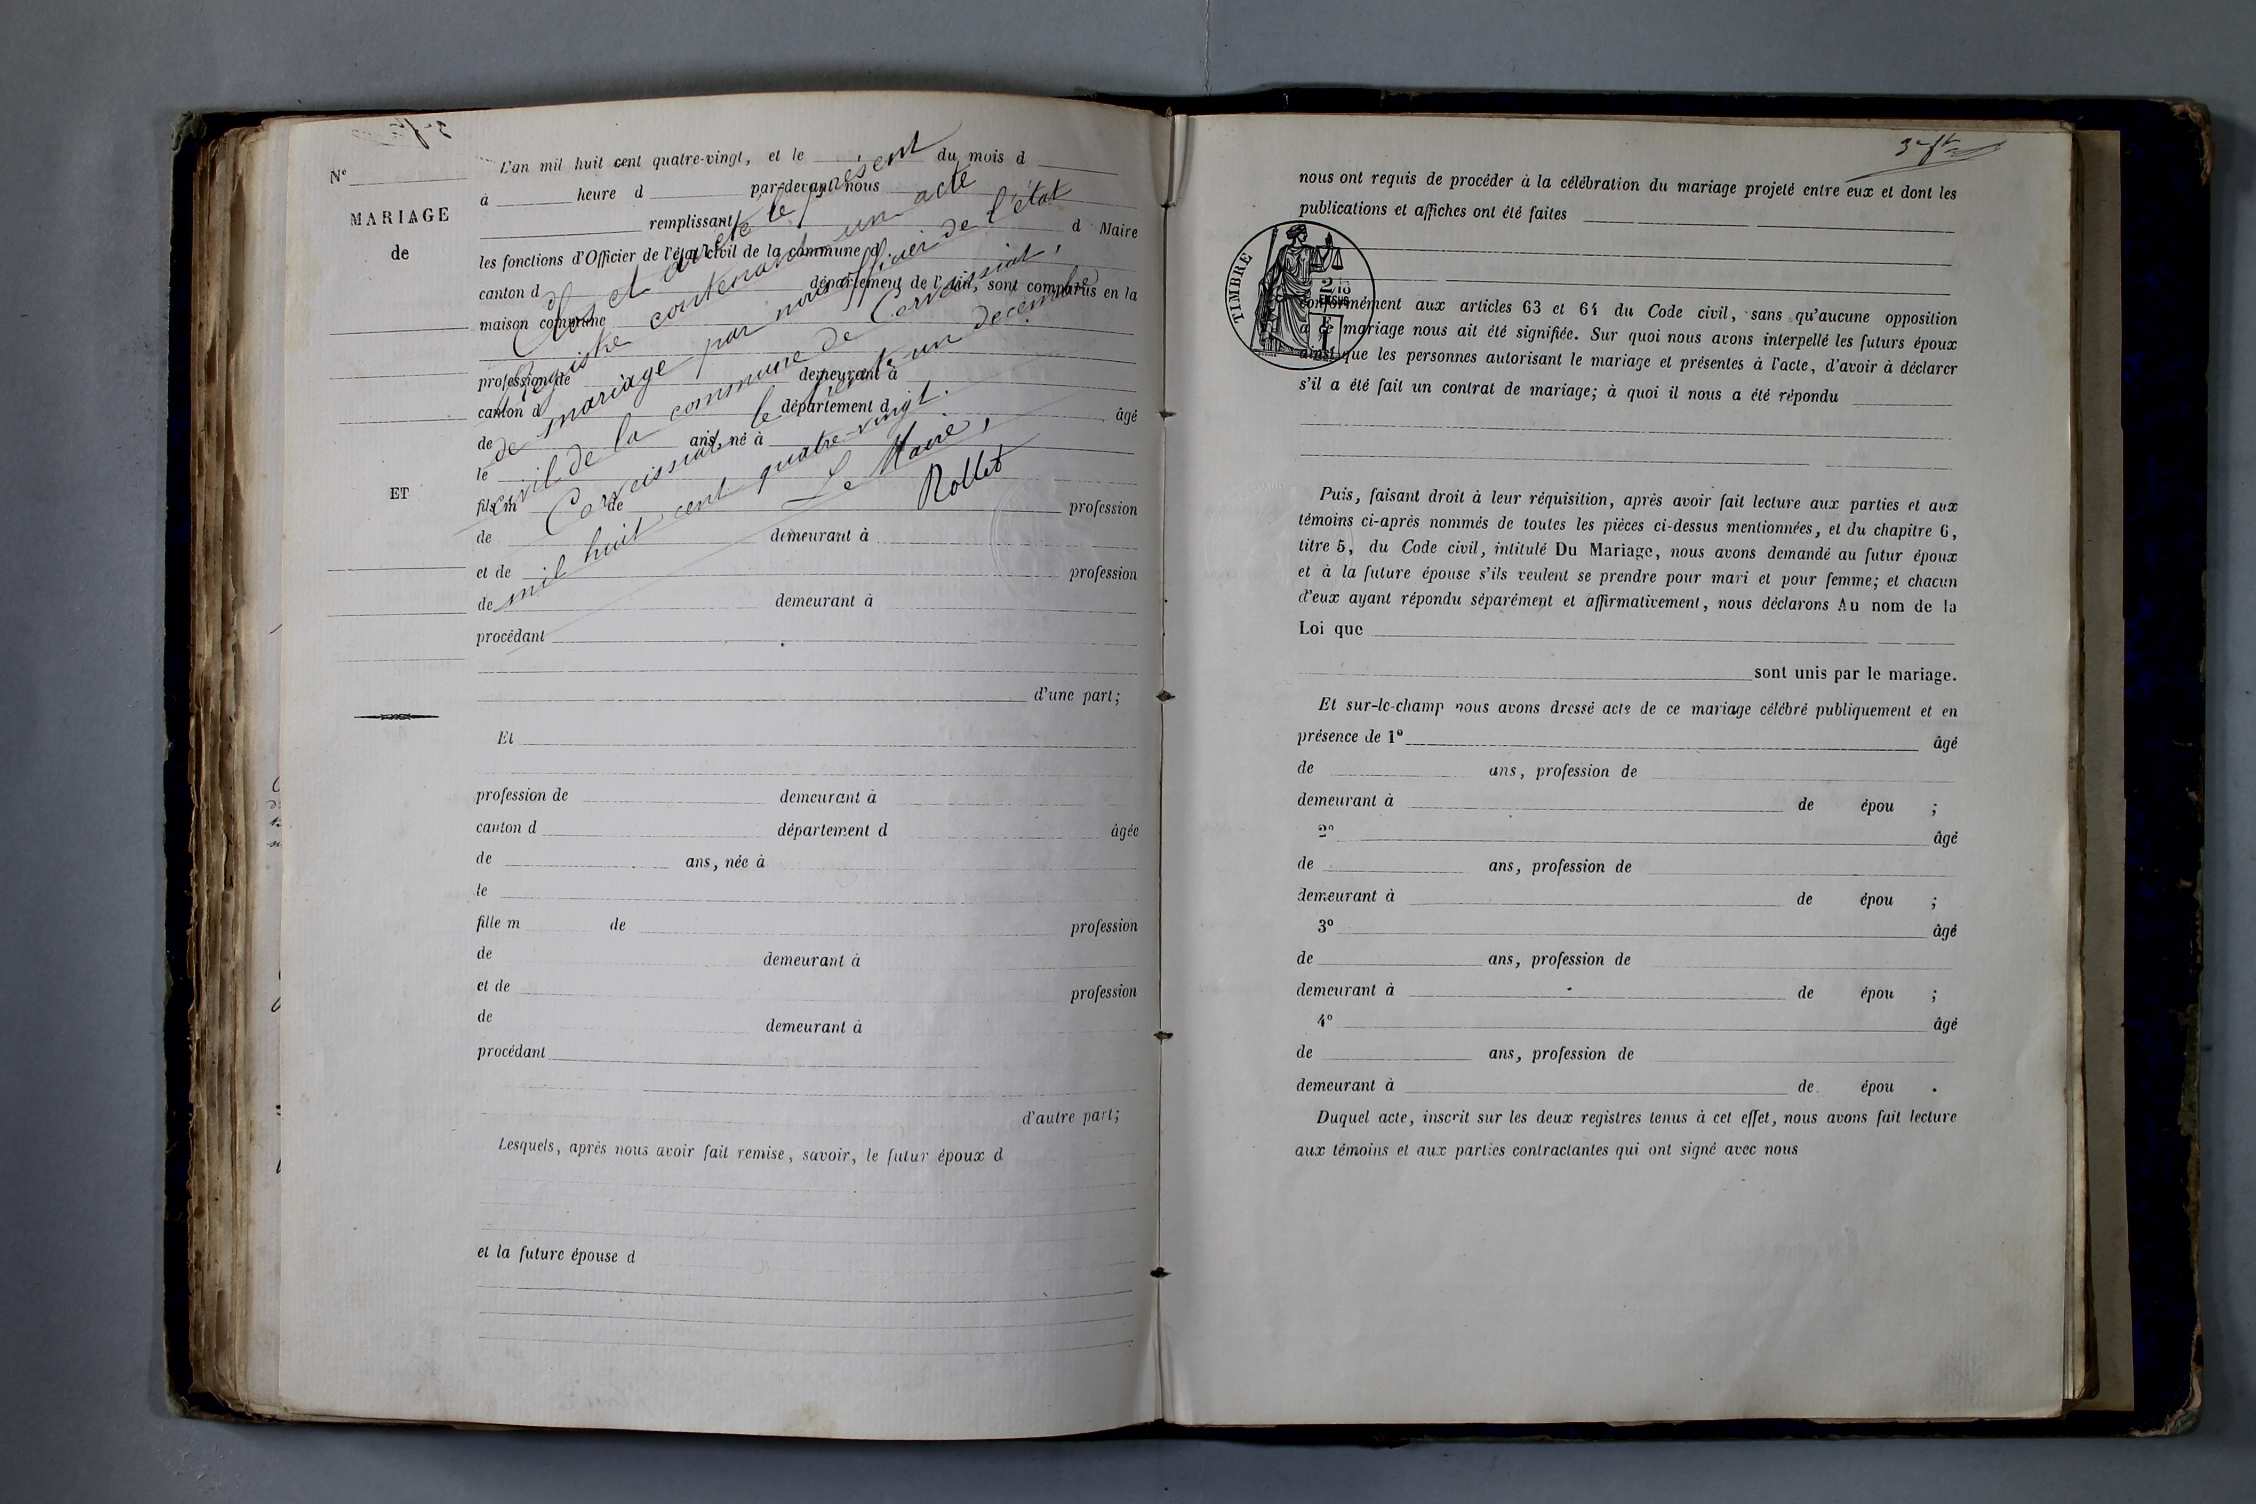 N°
MARIAGE
de
ET
L'an mil huit cent quatre-vingt, et le du mois d
à heure d par-devant nous
remplissant d Maire
les fonctions d'Officier de l'état civil de la commune d
canton d département de l'Ain, sont comparus en la
maison commune
profession de demeurant à
canton d département d âgé
de ans, né à
le
fils m de profession
de demeurant à
et de profession
de demeurant à
procédant
d'une part;
Clos et arrêté le présent
Registre contenant un acte
de mariage par nous officier de l'état
civil de la commune de Corveissiat,
Corveissiat, le trente un decembre
mil huit cent quatre-vingt.
Le Maire,
Rollet
Et
profession de demeurant à
canton d département d âgée
de ans, née à
le
fille m de profession
de demeurant à
et de profession
de demeurant à
procédant
d'autre part;
Lesquels, après nous avoir fait remise, savoir, le futur époux d
et la future épouse d
nous ont requis de procéder à la célébration du mariage projeté entre eux et dont les
publications et affiches ont été faites
TIMBRE
2/10
EN SUS
conformément aux articles 63 et 64 du Code civil, sans qu'aucune opposition
à ce mariage nous ait été signifiée. Sur quoi nous avons interpellé les futurs époux
ainsi que les personnes autorisant le mariage et présentes à l'acte, d'avoir à déclarer
s'il a été fait un contrat de mariage; à quoi il nous a été répondu
Puis, faisant droit à leur réquisition, après avoir fait lecture aux parties et aux
témoins ci-après nommés de toutes les pièces ci-dessus mentionnées, et du chapitre 6,
titre 5, du Code civil, intitulé Du Mariage, nous avons demandé au futur époux
et à la future épouse s'ils veulent se prendre pour mari et pour femme; et chacun
d'eux ayant répondu séparément et affirmativement, nous déclarons Au nom de la
Loi que
sont unis par le mariage.
Et sur-le-champ nous avons dressé acte de ce mariage célébré publiquement et en
présence de 1° âgé
de ans, profession de
demeurant à de épou ;
2° âgé
de ans, profession de
demeurant à de épou ;
3° âgé
de ans, profession de
demeurant à de épou ;
4° âgé
de ans, profession de
demeurant à de épou .
Duquel acte, inscrit sur les deux registres tenus à cet effet, nous avons fait lecture
aux témoins et aux parties contractantes qui ont signé avec nous